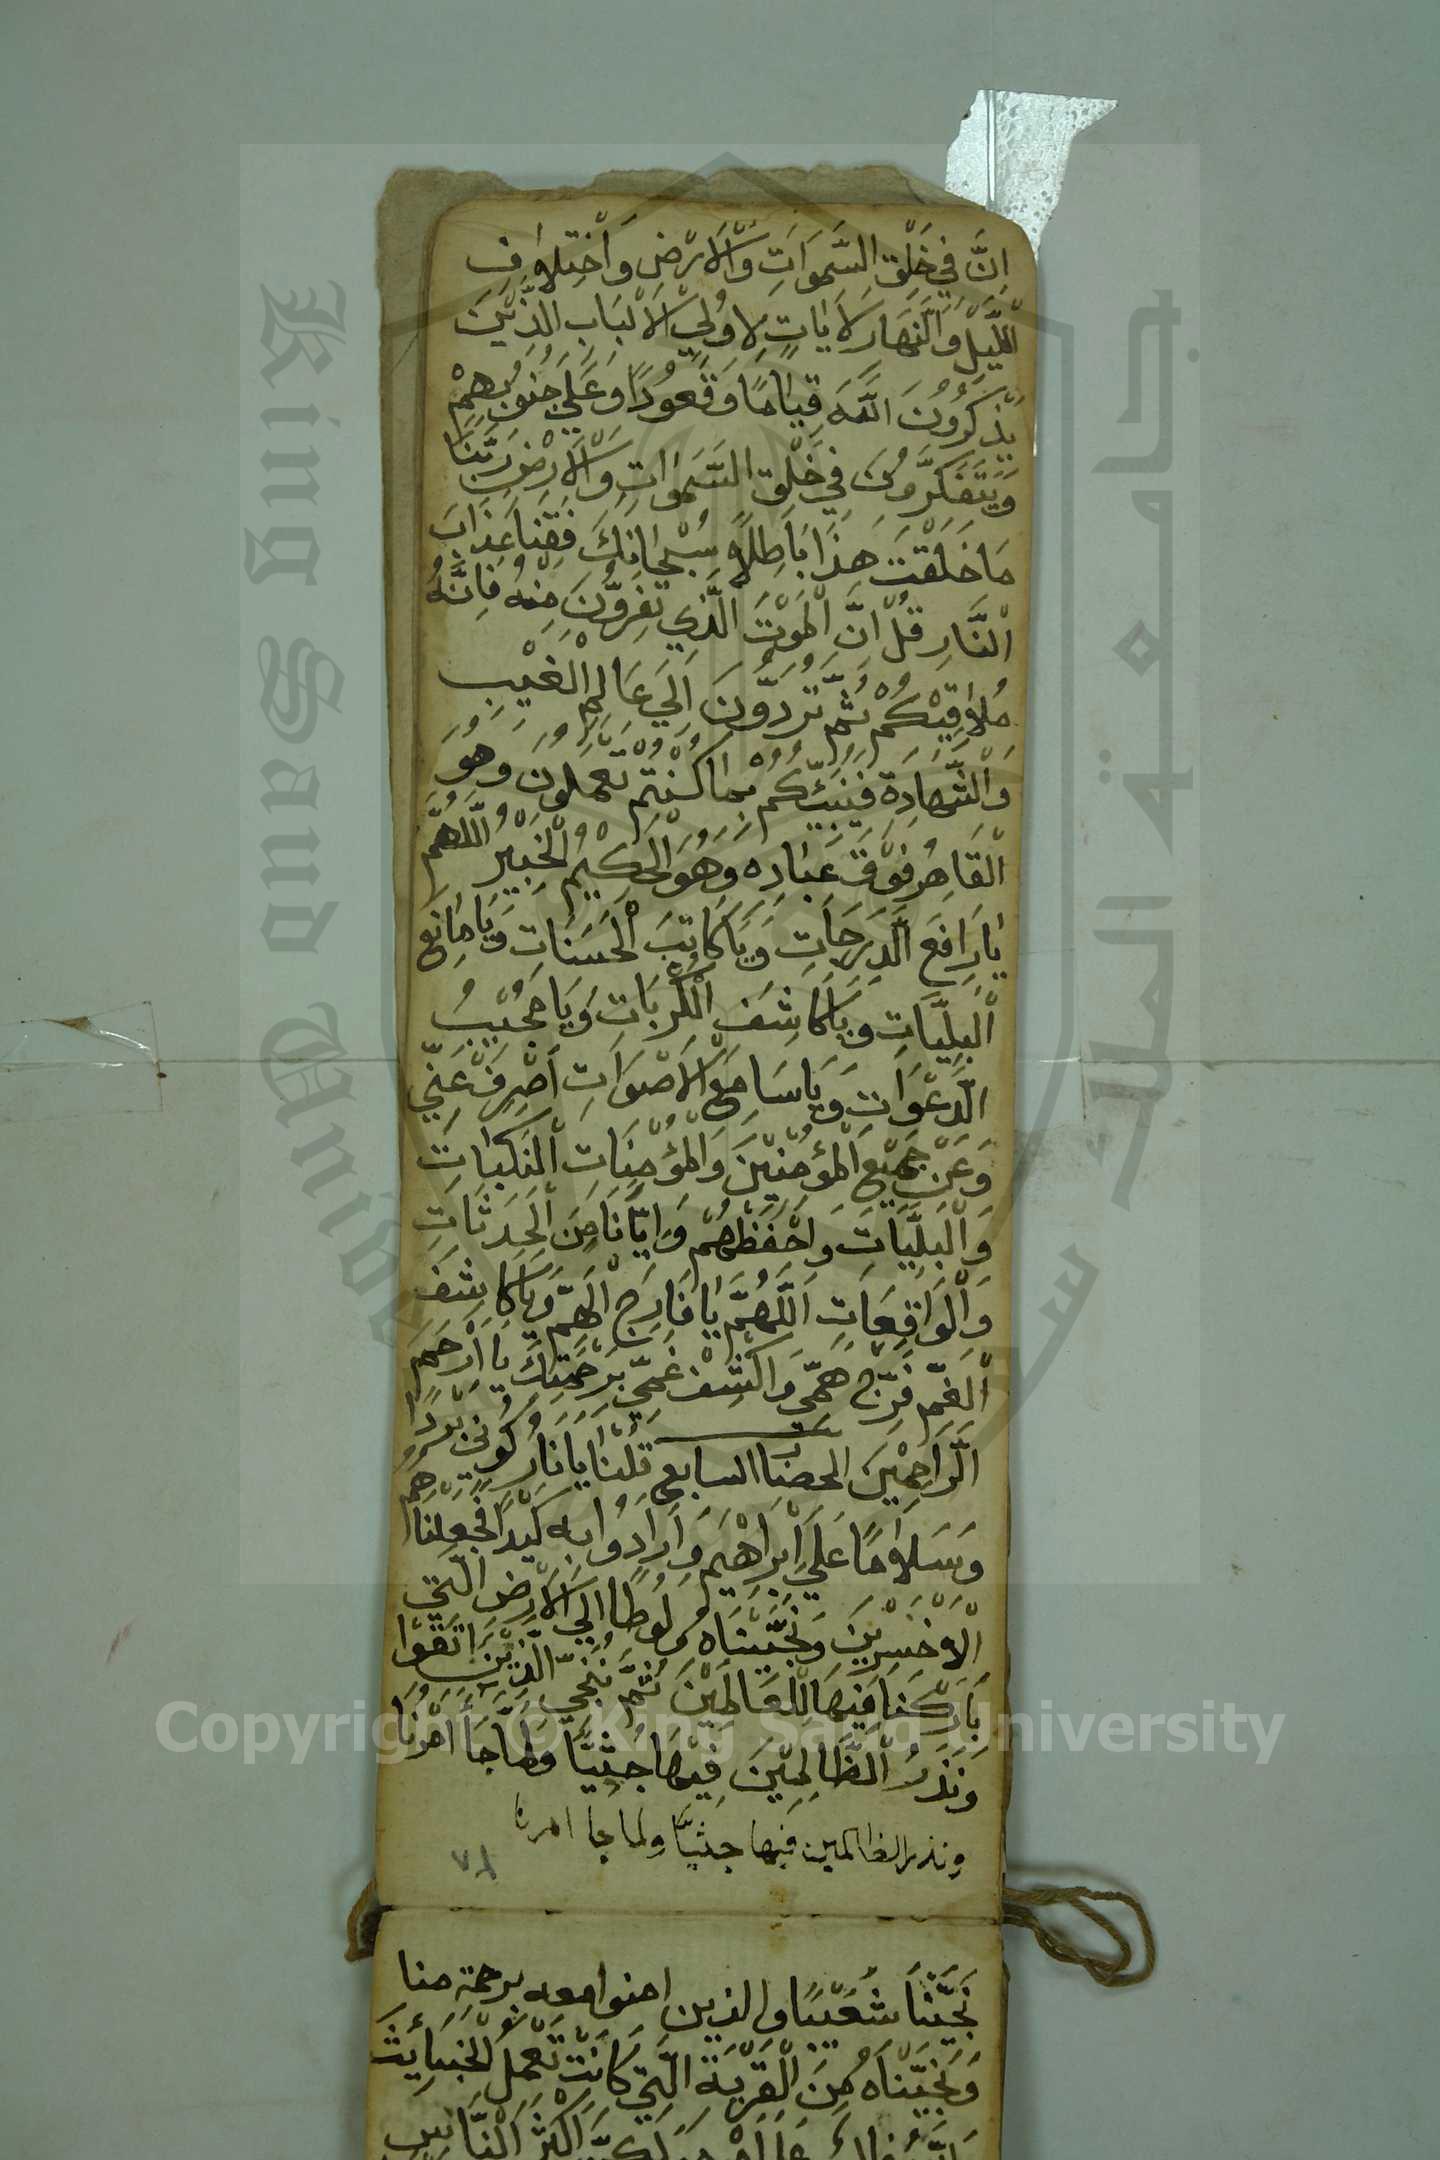 اِنَّ فِي خَلْقِ السَّمَوَاتِ وَالْاَرْضِ وَاخْتِلَافِ
الْلَّيْلِ وَالنَّهَارِ لَاَيَاتٍ لِاُولِي الْاَلْبَابِ الَّذِيْنَ
يَذْكُرُوْنَ اللّٰهَ قِيَامًا وَقُعُوْدًا وَعَلَي جُنُوْبِهِمْ
وَيَتَفَكَّرُوْنَ فِي خَلْقِ السَّمَوَاتِ وَالْاَرْضِ رَبَّنَا
مَا خَلَقْتَ هَذَا بَاطِلًا سُبْحَانَكَ فَقِنَا عَذَابَ
النَّارِ قُلْ اِنَّ الْمَوْتَ الَّذِي تَفِرُّوْنَ مِنْهُ فَاِنَّهُ
مُلَاقِيْكُمْ ثُمَّ تُرَدُّوْنَ اِلَي عَالِمِ الْغَيْبِ
وَالْشَّهَادَةِ فَيُنَبِّئُكُمْ بِمَا كُنْتُمْ تَعْمَلُوْنَ وَهُوَ
الْقَاهِرُ فَوْقَ عِبَادِهِ وَهُوَ الْحَكِيْمُ الْخَبِيْرُ اللَّهُمَّ
يَا رَافِعَ الَّدَرَجَاتِ وَيَا كَاتِبَ الْحَسَنَاتِ وَيَا مَانِعَ
الْبَلِيَّاتِ وَيَا كَاشِفَ الْكُرُبَاتِ وَيَا مُجِيْبُ
الَّدَعْوَاتِ وَيَا سَامِعَ الْاَصْوَاتِ اَصْرِفْ عَنِّي
وَعَنْ جَمِيْعِ الْمُؤْمِنِيْنَ وَالْمُؤْمِنَاتِ الْنَكَبَاتِ
وَالْبَلِيَّاتِ وَاحْفَظْهُمْ وَاِيَّانَا مِنَ الْحَدَثَاتِ
وَالْوَاقِعَاتِ اَللَّهُمَّ يَا فَارِجَ الْهَمِّ وَيَا كَاشِفَ
الْغَمِّ فَرِّجْ هَمِّي وَاكْشِفْ غَمِّي بِرَحْمَتِكَ يَا اَرْحَمَ
الَّرَاحِمِيْنَ الحصن السابع قُلْنَا يَا نَارُ كُوْنِي بَرْدًا
وَسَلَامًا عَلَي اِبْرَاهِيْمَ وَاَرَادُوْا بِهِ كَيْدًا فَجَعَلْنَاهُمُ
الْاَخْسَرِيْنَ وَنَجَّيْنَاهُ وَلُوْطًا اِلَي الْاَرْضِ الَّتِي
بَارَكْنَا فِيْهَا لِلْعَالَمِيْنَ ثُمَّ نُنَجِّي الَّذِيْنَ اتَّقَوْا
وَنَذَرُ الْظَّالِمِيْنَ فِيْهَا جِثِيًّا وَلَمَّا جَاَ اَمْرُنَا
ونذر الظالمين فيها جثيًّا ولما جا امرنا
٧٤
نَجَّيْنَا شُعَيْبًا والذين امنوا معه برحمة منا
وَنَجَّيْنَاهُ مِنَ الْقَرْيَةِ الَّتِي كَانَتْ تَعْمَلُ الْخَبَائِثَ
اَكْثَرَ الْنَّاسِ
Copyright © King Saud University
King Saud University
جامعة الملك سعود